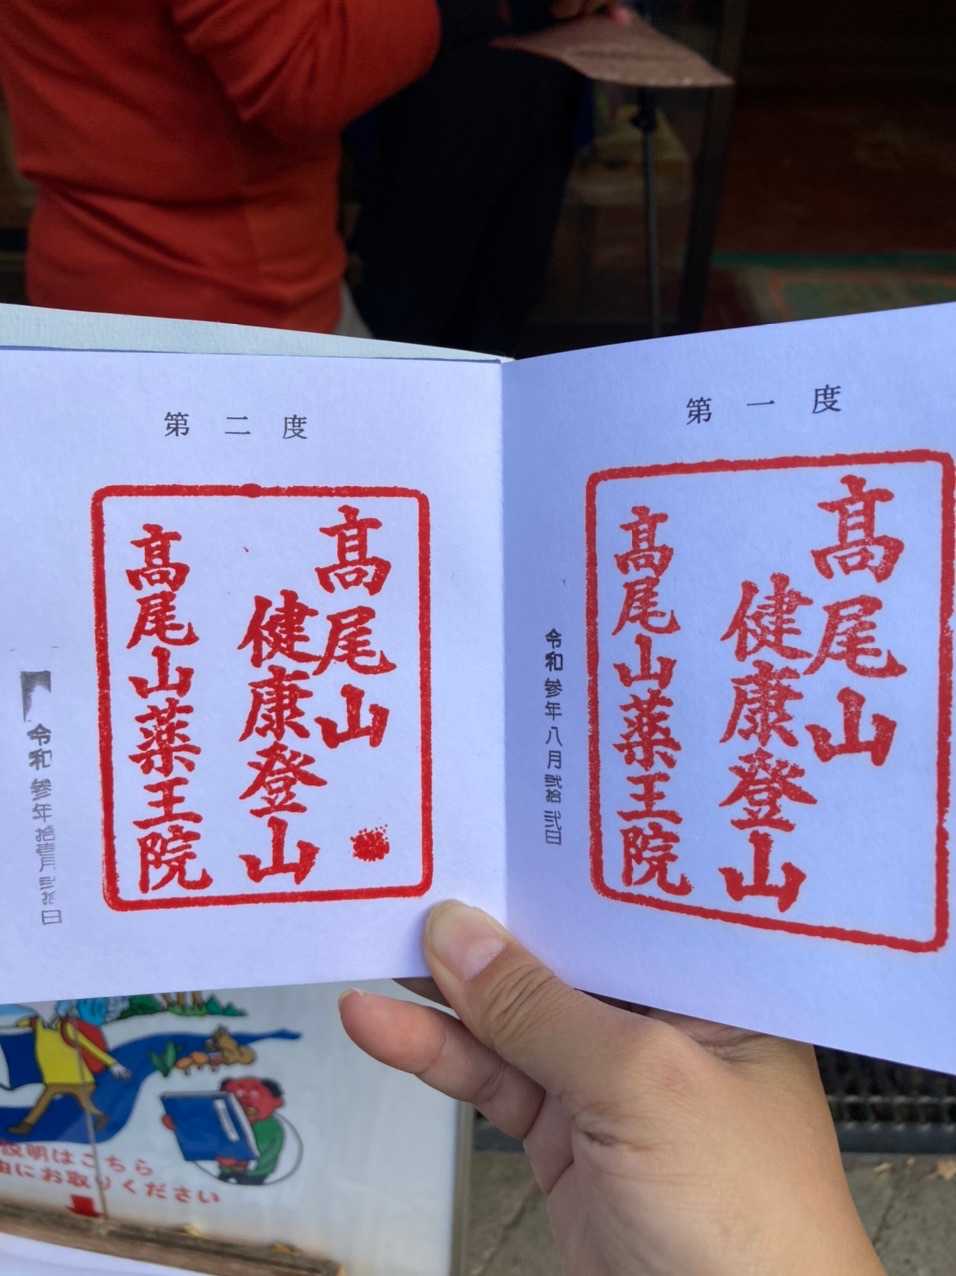 第一度
髙尾山
健康登山
髙尾山薬王院
令和参年八月弐拾弐日
第二度
髙尾山
健康登山
髙尾山薬王院
令和参年拾壱月
日
説明はこちら
にお取りください